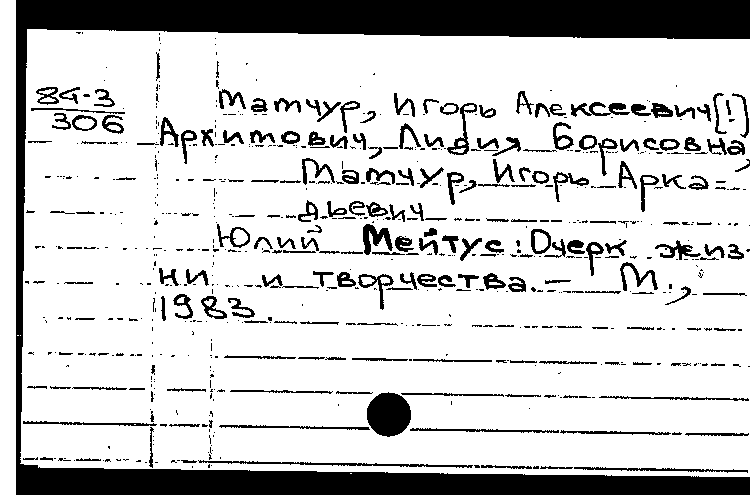 84-3
306
Мамчур, Игорь Алексеевич[!]
Архимович, Лидия Борисовна,
Мамчур, Игорь Арка=
дьевич
Юлий Мейтус: Очерк жиз-
ни и творчества. — М.,
1983.